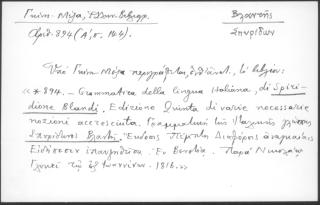 Γκίνη - Μέξα, Ἑλλην. Βιβλιογρ.
Βλαντῆς
Ἀριθ. 894 (Α', σ. 144).
Σπυρίδων
Ὑπὸ Γκίνη - Μέξα περιγράφεται, τὸ βιβλίον:
«* 894. – Grammatica della lingua italiana, di Spiri-
dione Blandi. Edizione Quinta di varie necessarie
nozioni accresciuta. Γραμματικὴ τῆς Ἰταλικῆς γλώσσης
Σπυρίδωνος Βλαντῆ. Ἔκδοσις Πέμπτη Διαφόροις ἀναγκαίαις
Εἰδήσεσιν ἐπαυξηθεῖσα. Ἐν Βενετίᾳ. Παρὰ Νικολάῳ
Γλυκεῖ τῷ ἐξ Ἰωαννίνων. 1816.»